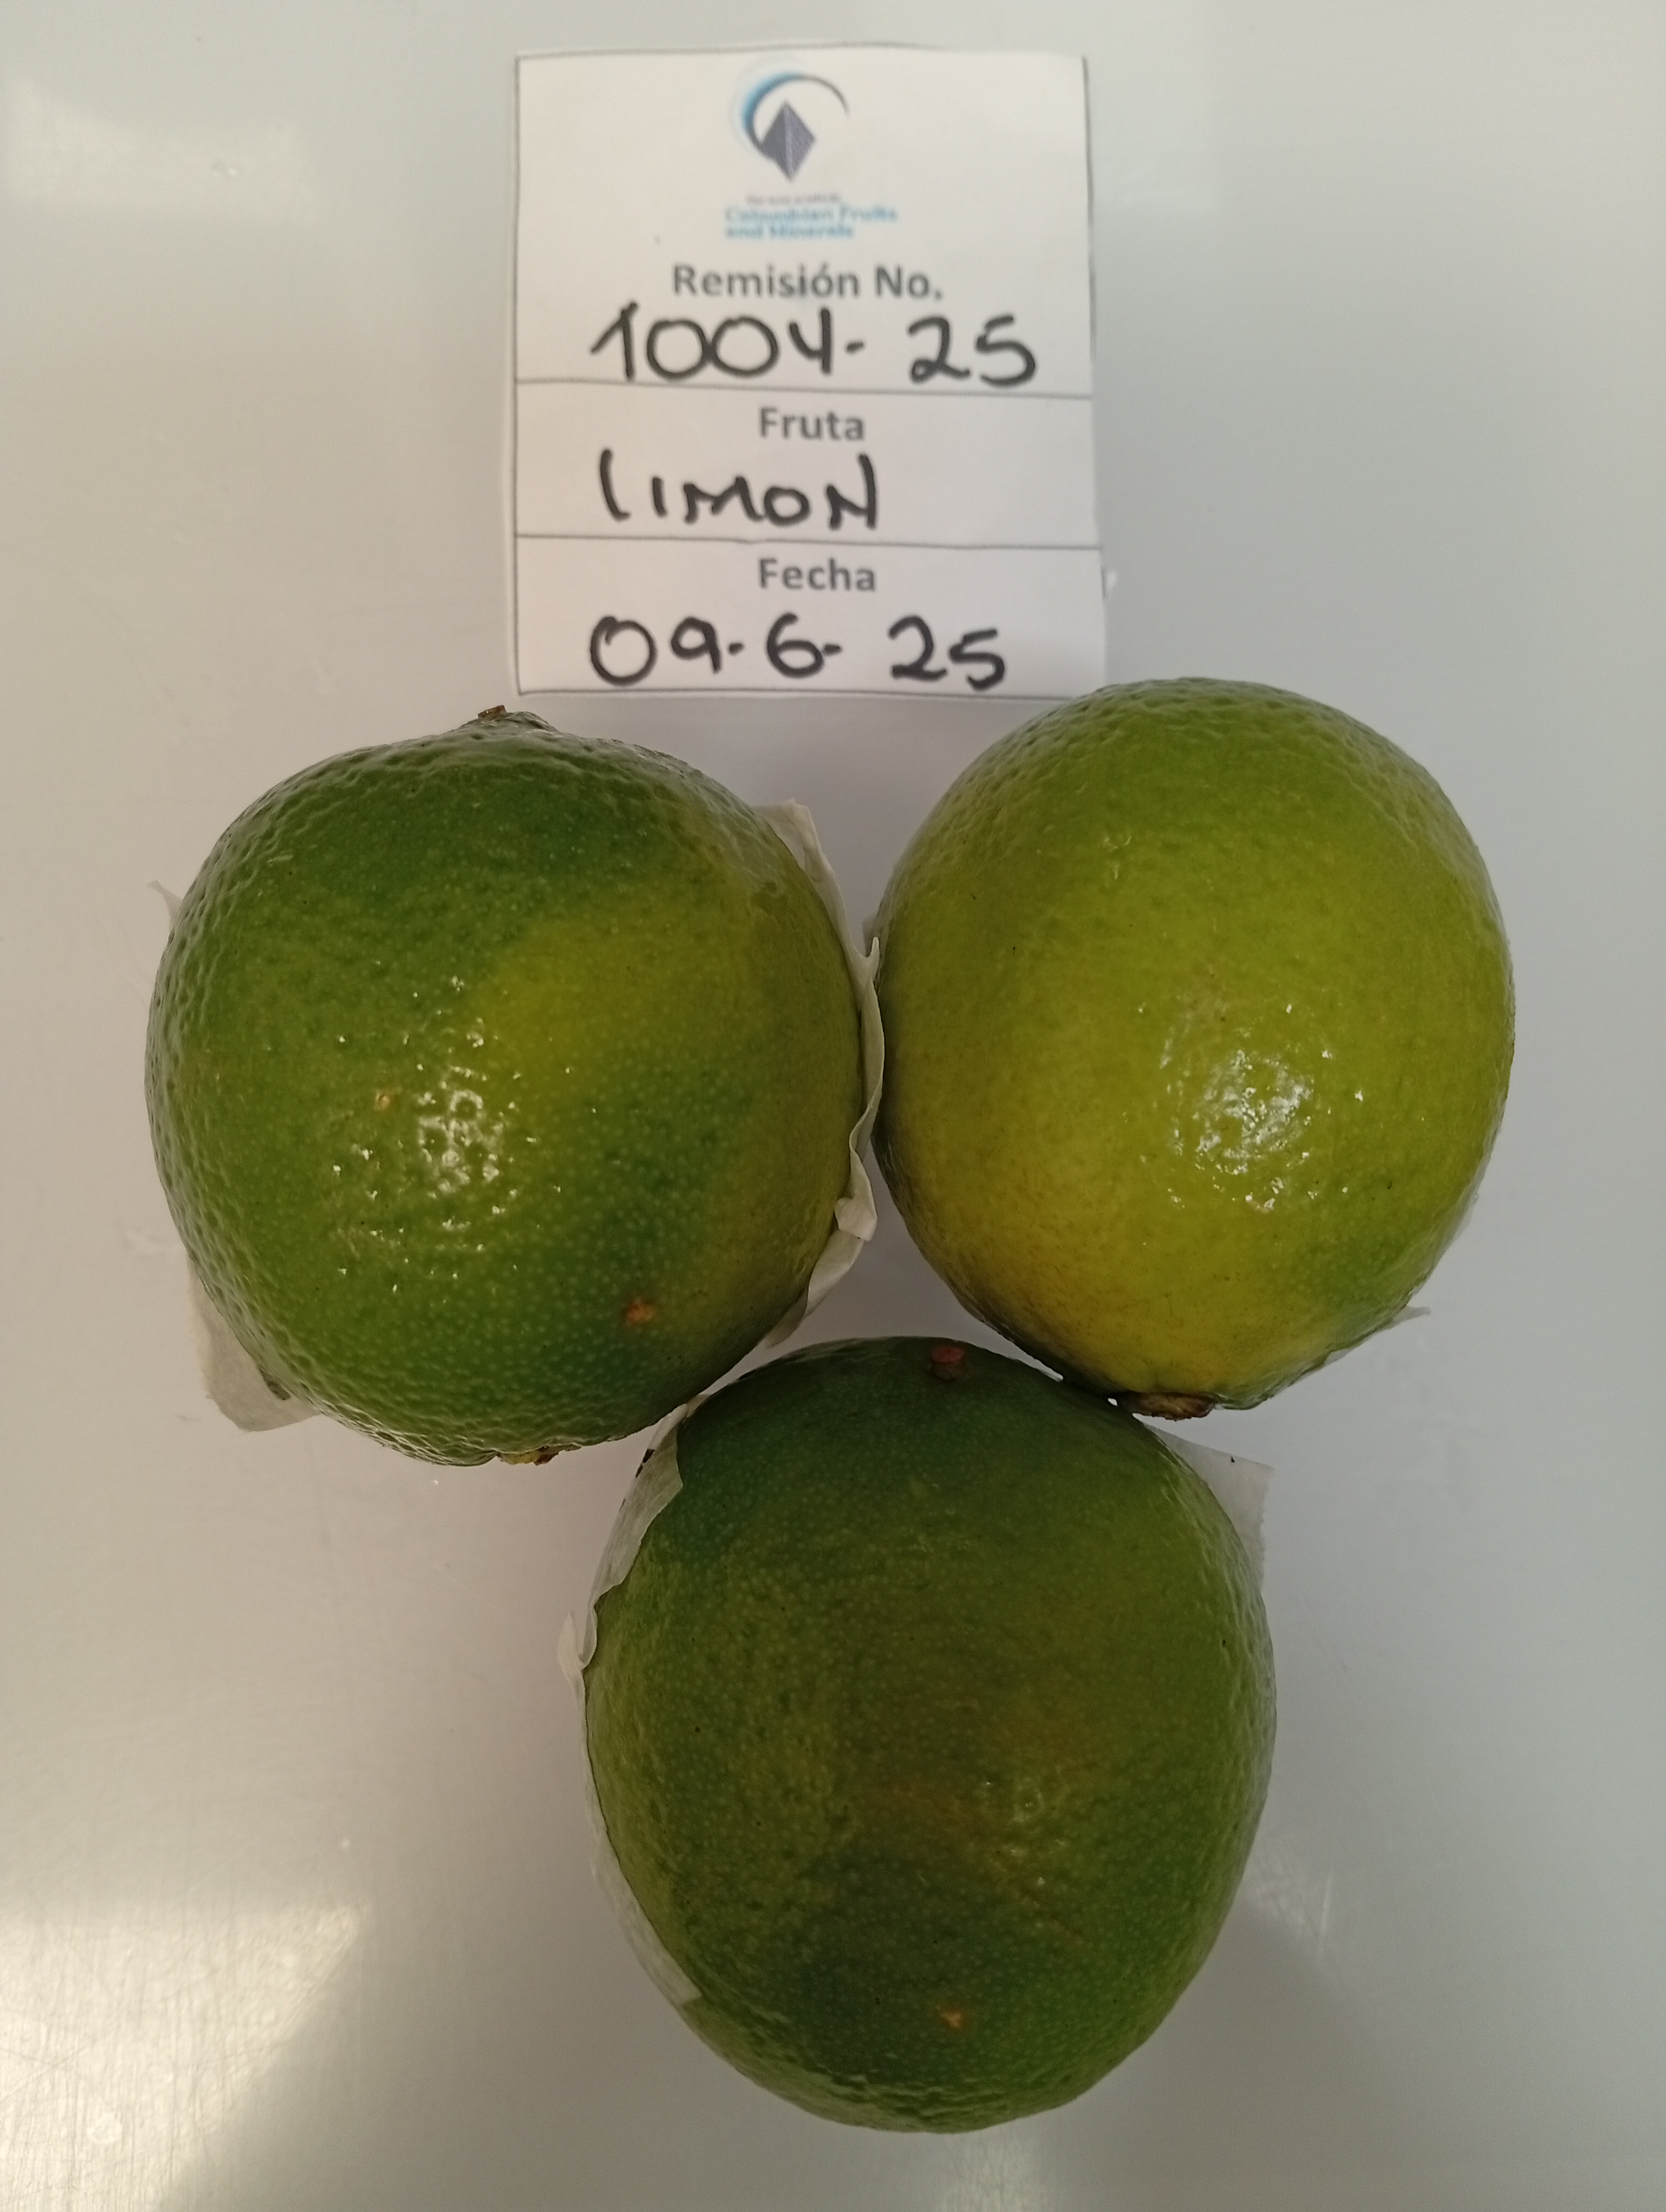 Colombian Fruits
and Minerals
Remisión No.
1004-25
Fruta
LIMON
Fecha
09-6-25